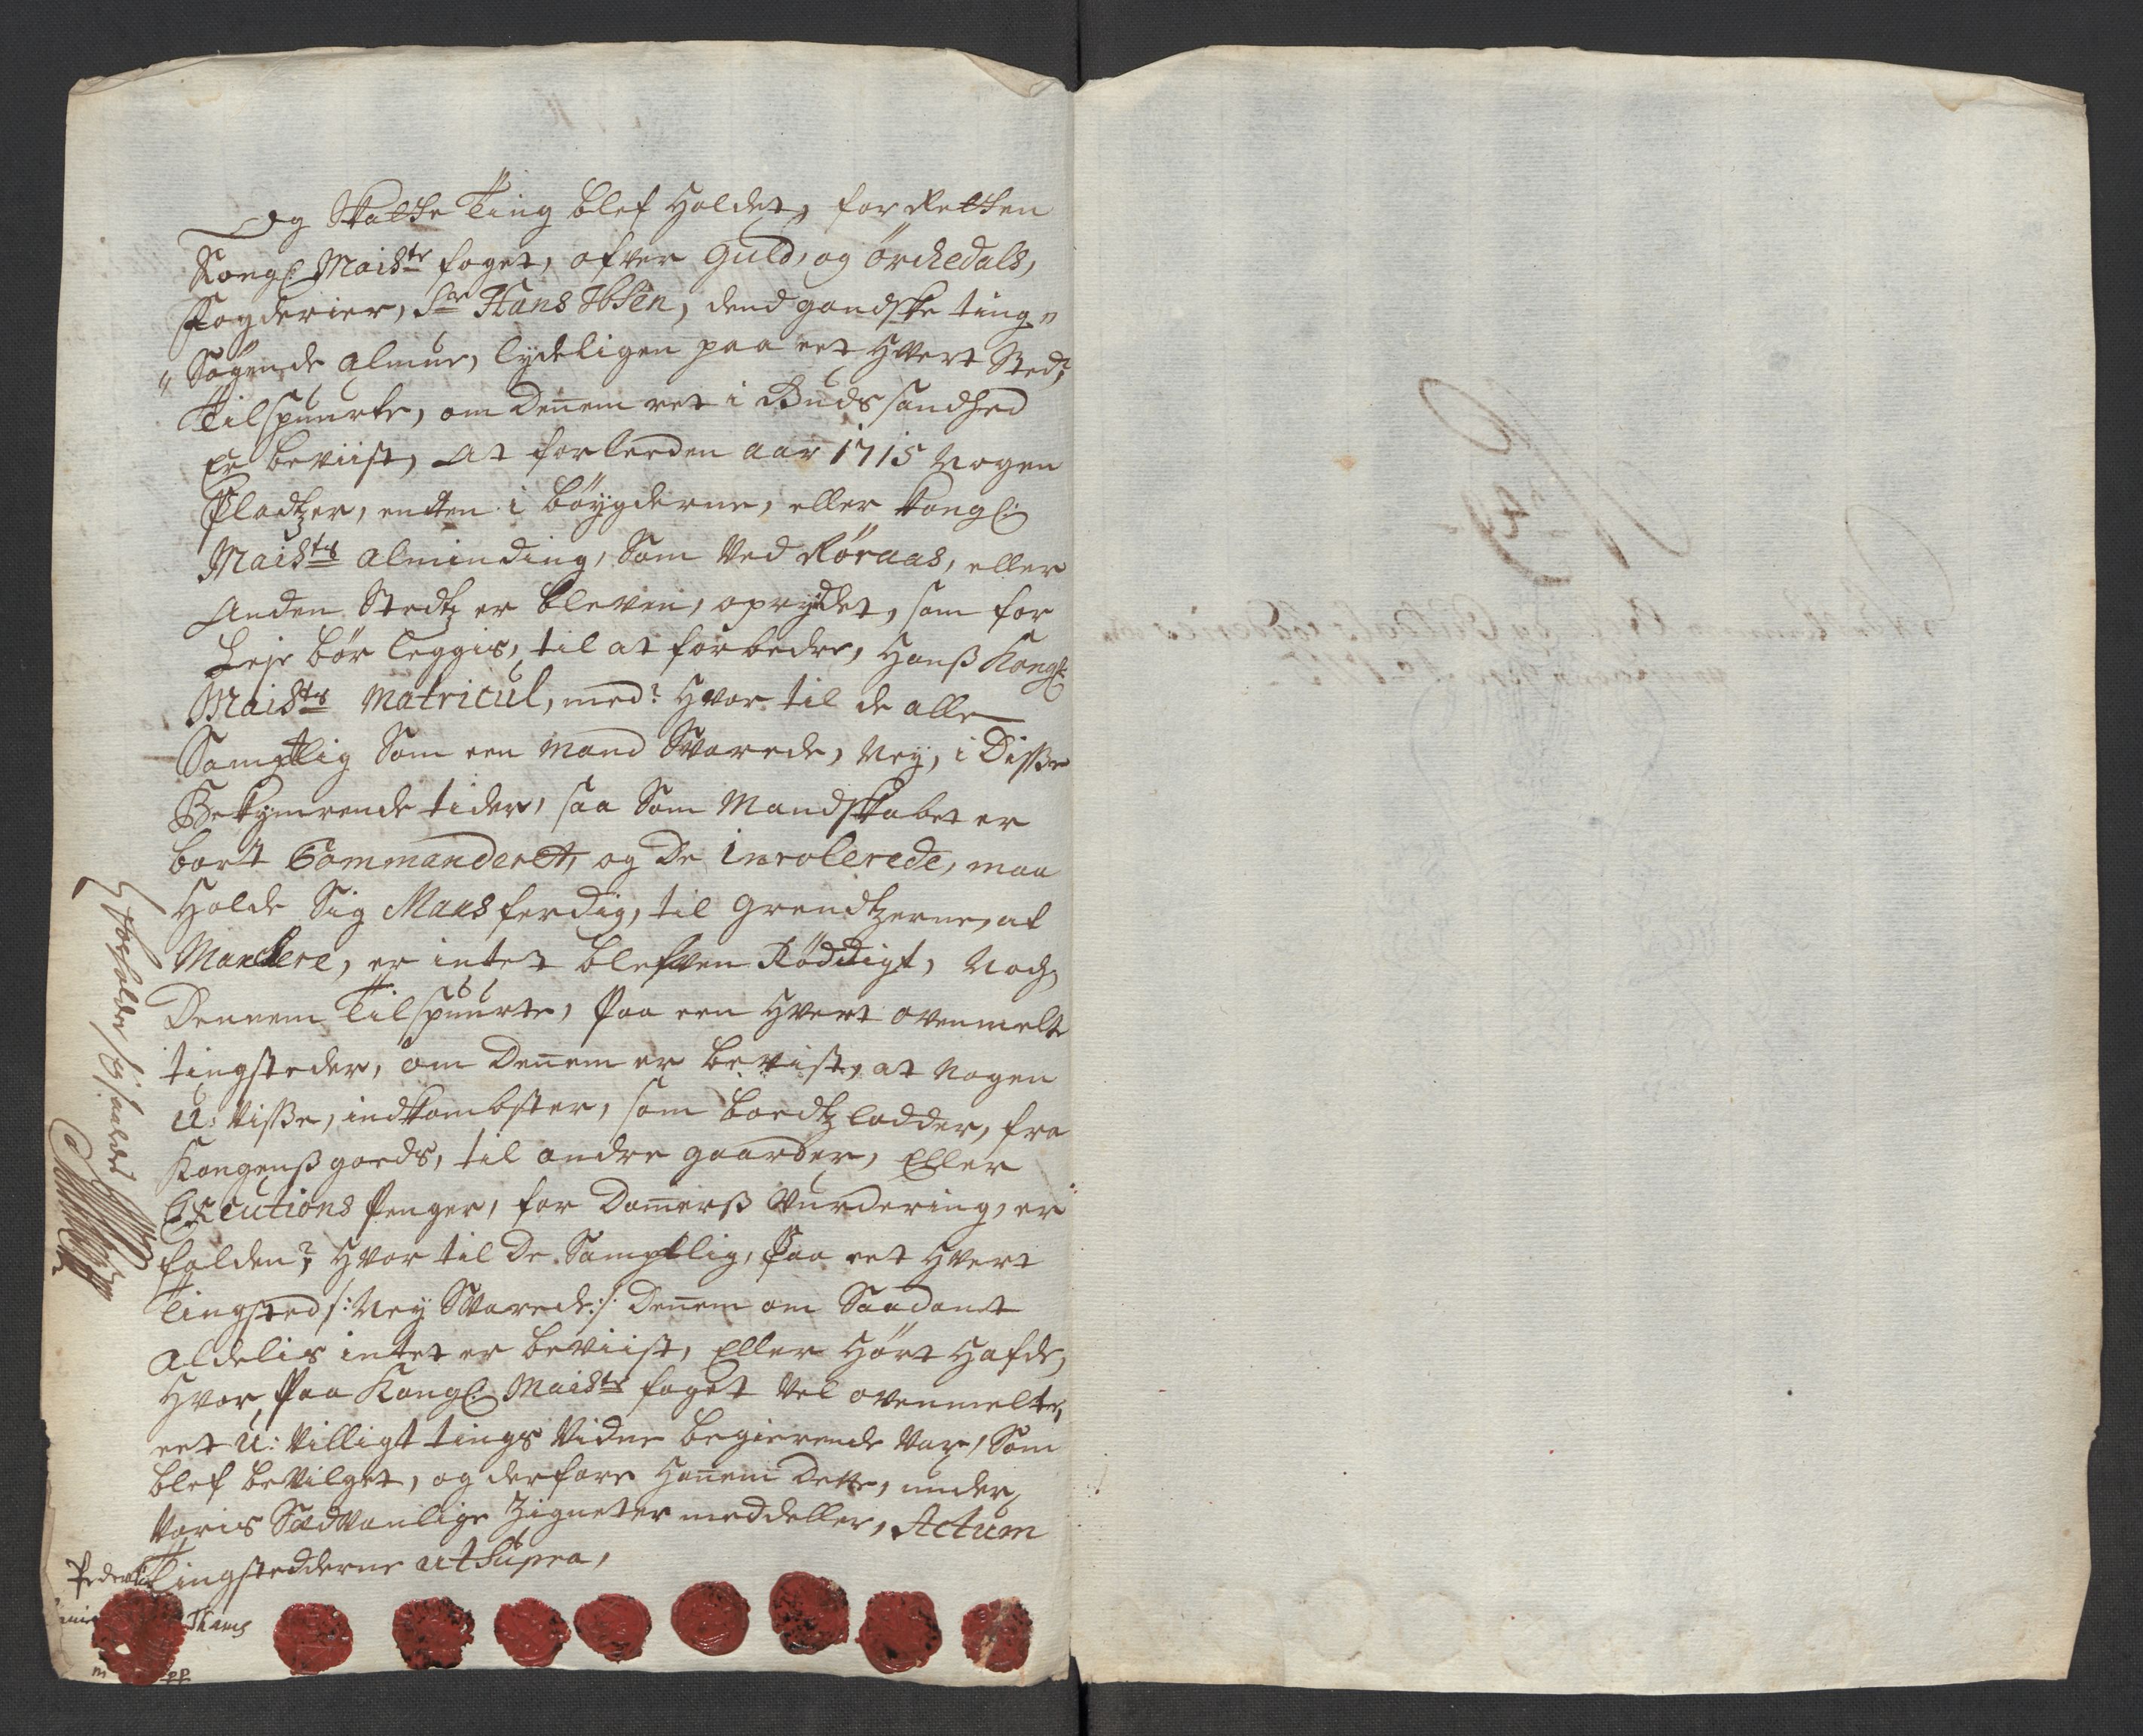 Og Skatte Ting blef Holdet, for Retten
Kongl Maists foget, ofver Guld, og Örckedals,
Fogderier, Sr Hans Ibsen, dend gandske ting„
„Søgende Almue, lydeligen paa eet Hvert Sted,
Tilspuurte, om Dennem ret i Guds sandhed
Er beviist, At forleeden aar 1715 Nogen
Pladtzer, entten i böygderne, eller Kongl:
Maists Alminding, Som Ved Röraas, eller
Anden Stedtz er bleven, oprydet, som for
Leje bör leggis, til at forbedre, Hanß Kongl:
Maists Matricul, med? Hvor til de alle
Samptlig Som een Mand Svarede, Ney, i Disse
Bekymrende tider, saa Som Mandskabet er
bort Commanderet, og De inrolerede, maa
Holde Sig Mars ferdig, til Grendtzerne, at
Marchere, er intet blefven Röddigt, Noch
Dennem Tilspuurte, Paa een Hvert ovenmelte
tingsteder, om Dennem er bevist, at Nogen
U: Visse, indkombster, som boedtzladder, fra
Kongens goeds, til andre gaarder, Eller
Executions Penger, for Domerß Vurdering, er
falden? Hvor til De Samptlig, Paa eet Hvert
Tingsted /: Ney Svarede :/ Dennem om Saadanet
Aldelis intet er beviist, Eller Hört Hafde,
Hvor Paa Kongl: Maists foget Vel ovenmelte,
eet U: Villigt tings Vidne begierende Var, Som
blef beVilget, og derfore Hannem Dette, under
Voris Sædvanlige Zigneter meddeller, Actum
Tingstedderne ut Supra,
Peder
Thams
m
pp
No 49